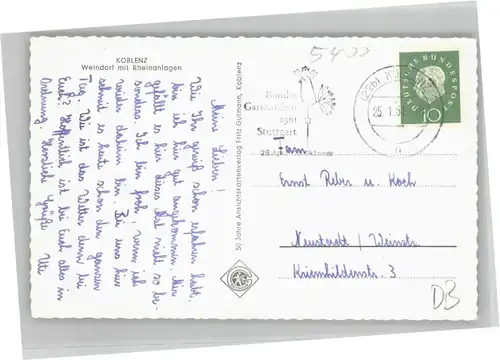 KOBLENZ
Weindorf mit Rheinanlagen
Meine Lieben!
Wie Ihr gewiß schon erfahren habt,
bin ich hier gut angekommen. Mir
gefällt es hier dieses Mal nicht so be-
sonders. Ich bin froh, wenn ich
wieder daheim bin. Bei uns hier
schneit es heute schon den ganzen
Tag. Wie ist das Wetter denn bei
Euch? Hoffentlich ist bei Euch alles in
Ordnung. Herzliche Grüße Uti
50 Jahre Ansichtskartenverlag Fritz Gutmann, Koblenz
5400
Bundes
Gartenschau
1961
Stuttgart
25.1.61
DEUTSCHE BUNDESPOST
10
Fam.
Ernst Reber u. Koch
Neustadt / Weinstr.
Kriemhildenstr. 3
DB